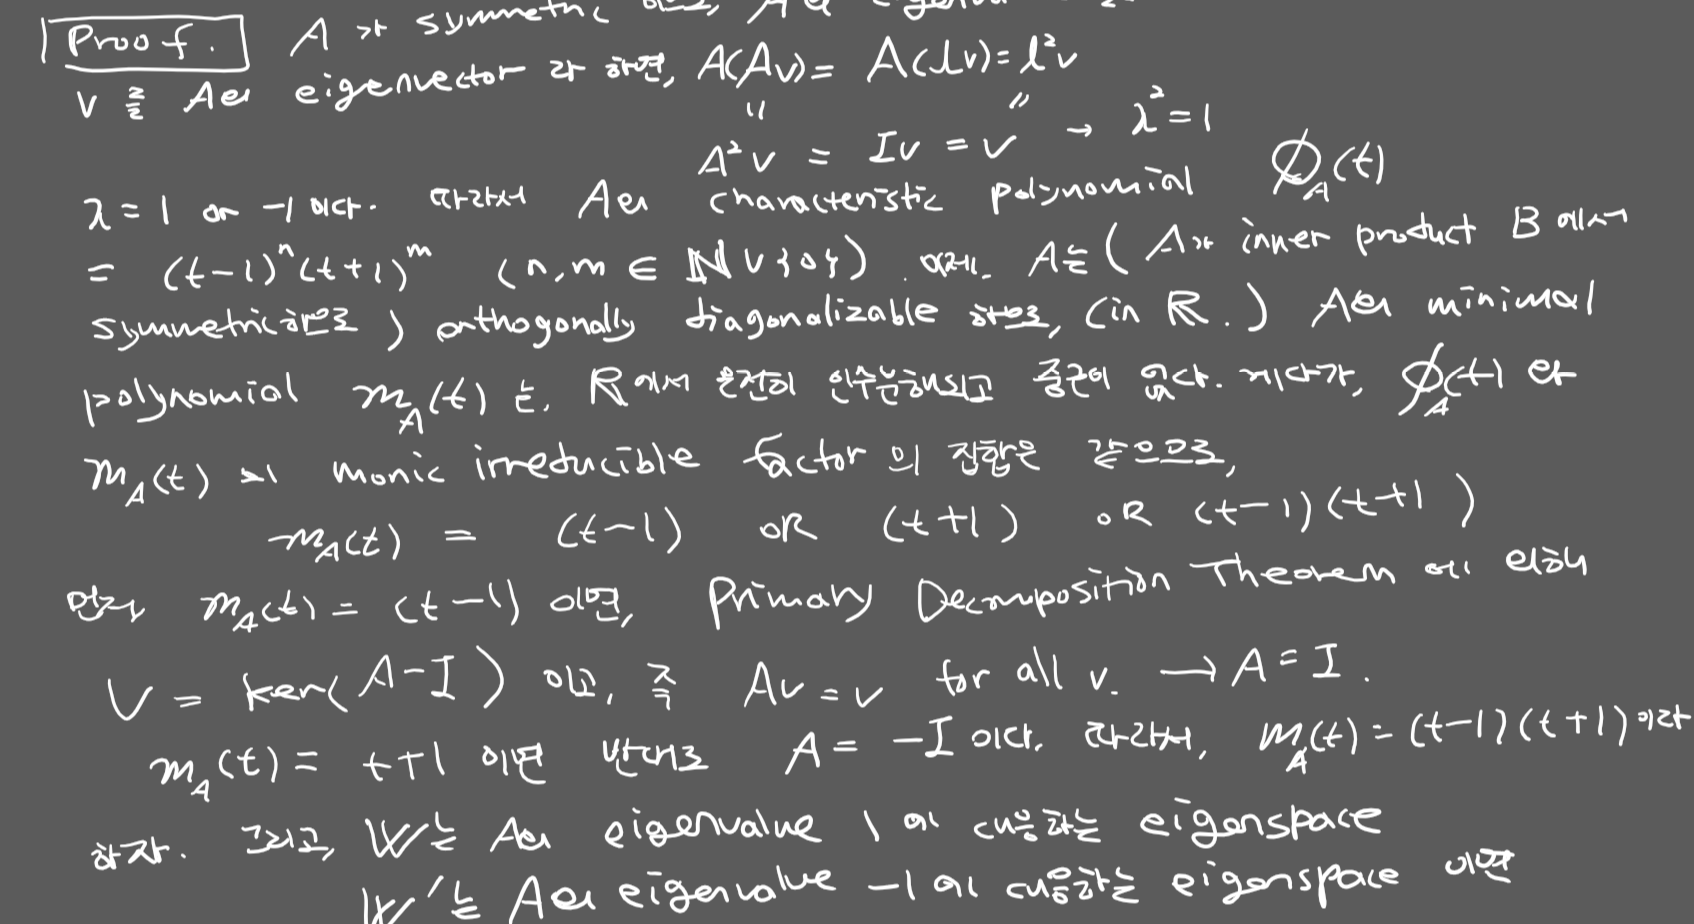 Proof. A 가 symmetric 이므로, A의
v 를 A의 eigenvector 라 하면, A(Av) = A(λv) = λ²v
" "
A²v = Iv = v → λ² = 1
λ = 1 or -1 이다. 따라서 A의 characteristic polynomial ϕ_A(t)
= (t-1)ⁿ(t+1)ᵐ (n, m ∈ ℕ∪{0}). 이때. A는 (A가 inner product B 에서
symmetric하므로) orthogonally diagonalizable 하므로, (in R.) A의 minimal
polynomial m_A(t) 는, R에서 완전히 인수분해되고 중근이 없다. 게다가, ϕ_A(t) 와
m_A(t) 의 monic irreducible factor 의 집합은 같으므로,
m_A(t) = (t-1) OR (t+1) OR (t-1)(t+1)
만약 m_A(t) = (t-1) 이면, Primary Decomposition Theorem 에 의해
V = ker(A-I) 이고, 즉 Av = v for all v. → A = I.
m_A(t) = t+1 이면 반대로 A = -I 이다. 따라서, m_A(t) = (t-1)(t+1) 이라
하자. 그리고, W는 A의 eigenvalue 1 에 대응하는 eigenspace
W'는 A의 eigenvalue -1 에 대응하는 eigenspace 이면